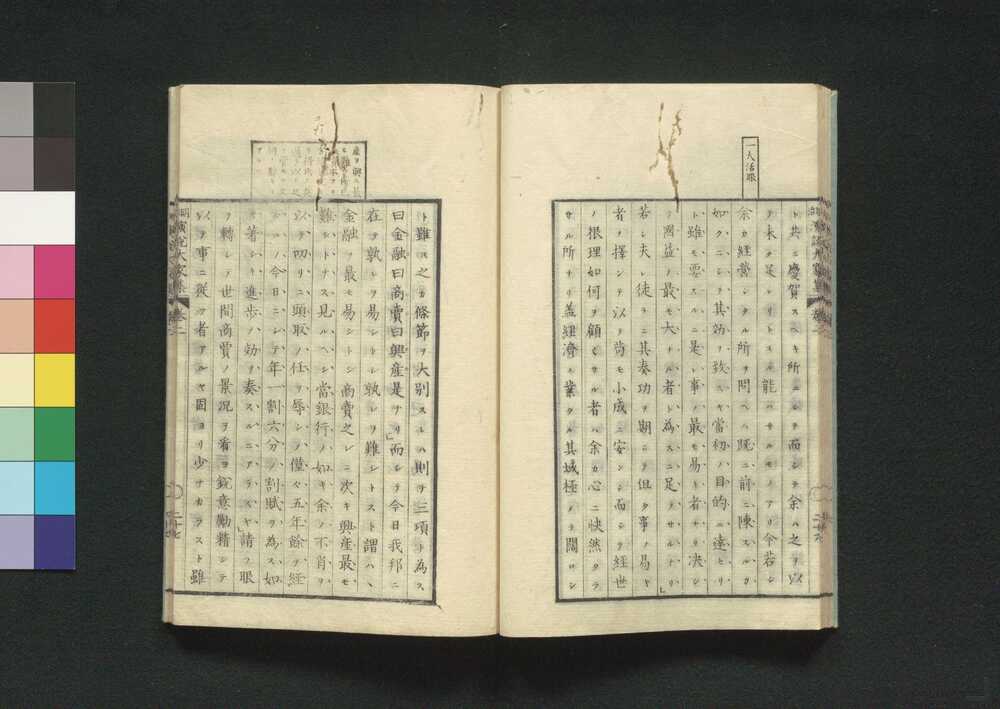 一大活眼
ト共ニ慶賀スヘキ所ニシテ而シテ余ハ之ヲ以
テ未タ足レリトスル能ハサルモノアリ今若シ
余カ經營シタル所ヲ問ヘハ既ニ前ニ陳スルカ
如クニシテ其効ヲ致ス ヤ當初ノ目的ニ達セリ
ト雖モ要スルニ是レ事ノ最モ易キ者ナリ決シ
テ國益ノ最モ大ナル者ト為スニ足ラサルナリ」
若シ夫レ徒ラニ其奏功ヲ期シテ但タ事ノ易キ
者ヲ擇シテ以テ苟モ小成ニ安ンシ而シテ經世
ノ根理如何ヲ顧ミサル者ハ余カ心ニ快然タラ
サル所ナリ蓋經濟ノ業タル其域極メテ闊ロシ
産ヲ興ス最
ト雖トモ之カ條節ヲ大別スレハ則チ三項ト為ス
曰金融曰商賣曰興産是ナリ」而シテ今日我邦ニ
在テ孰レヲ易シトシ孰レヲ難シトスト謂ハヽ
金融ヲ最モ易シトシ商賣之レニ次キ興産最モ
難シトナス見ルヘシ當銀行ノ如キ余ノ不肖ヲ
以テ叨リニ頭取ノ任ヲ辱シメ僅々五年餘ヲ經
ルノ今日ニシテ年一割六分ノ割賦ヲ為ス如
キ著シキ進歩ノ効ヲ奏スルニアラスヤ」請フ眼
ヲ轉シテ世間商賈ノ景況ヲ看ヨ鋭意勵精シテ
以テ事ニ從フ者アルヤ固ヨリ少ナカラスト雖
演説大家集 巻二